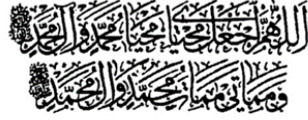 اَللّٰهُمَّ اجْعَلْ مَحْيَايَ مَحْيَا مُحَمَّدٍ وَآلِ مُحَمَّدٍ
وَمَمَاتِي مَمَاتَ مُحَمَّدٍ وَآلِ مُحَمَّدٍ